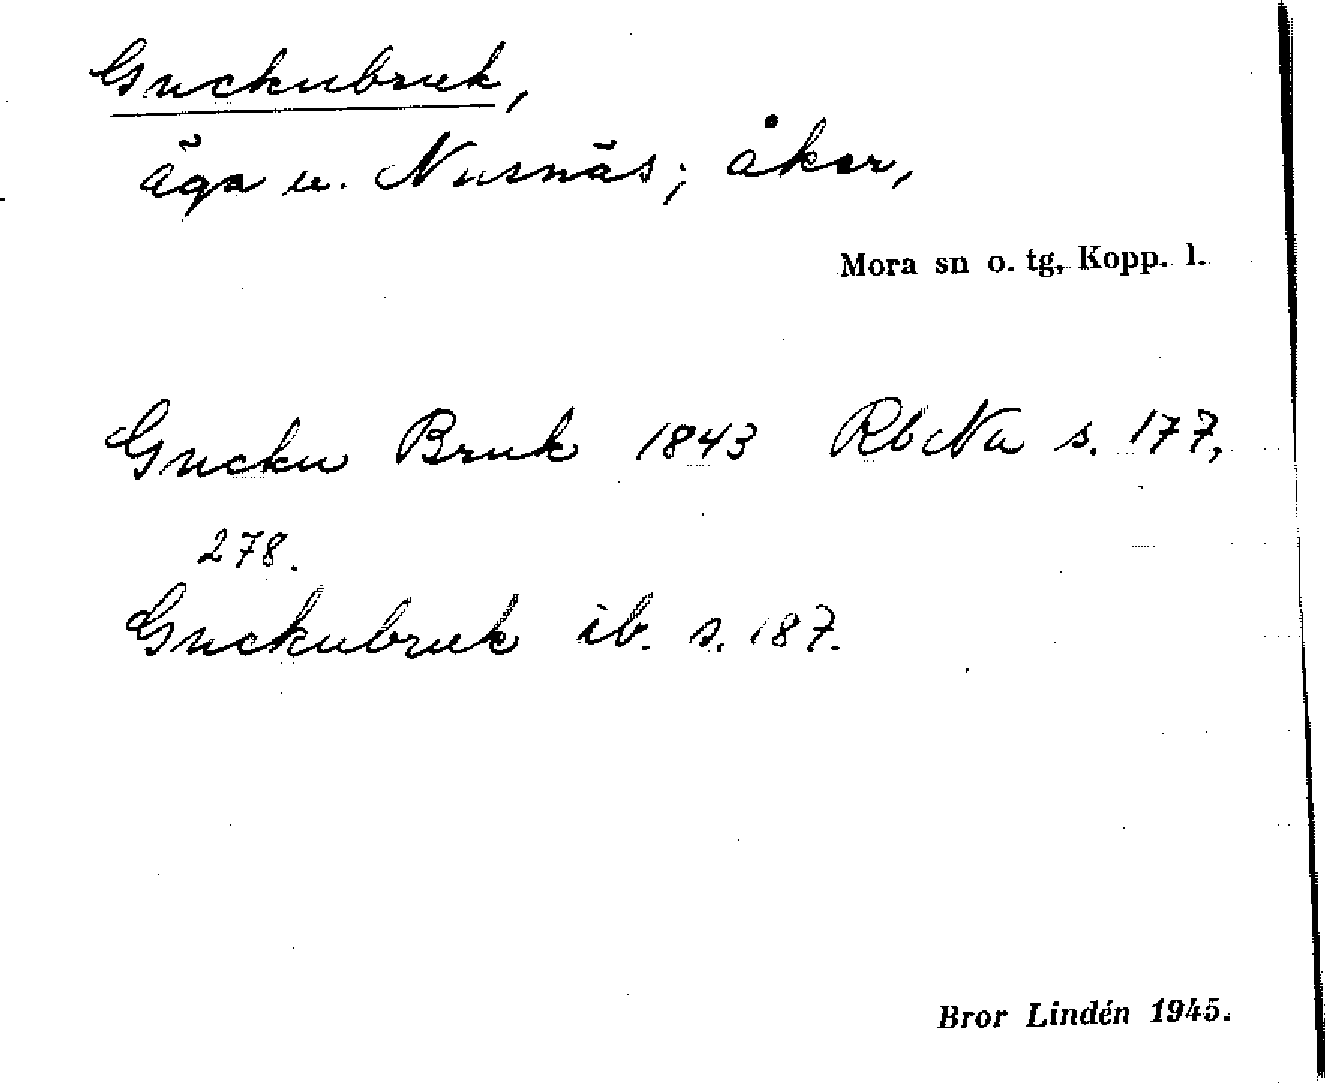 Guckubruk,
äga u. Nusnäs; åker,
Mora sn o. tg, Kopp. l.
Gucku Bruk 1843 RbNu s. 177,
278.
Guckubruk ib. s. 187.
Bror Lindén 1945.